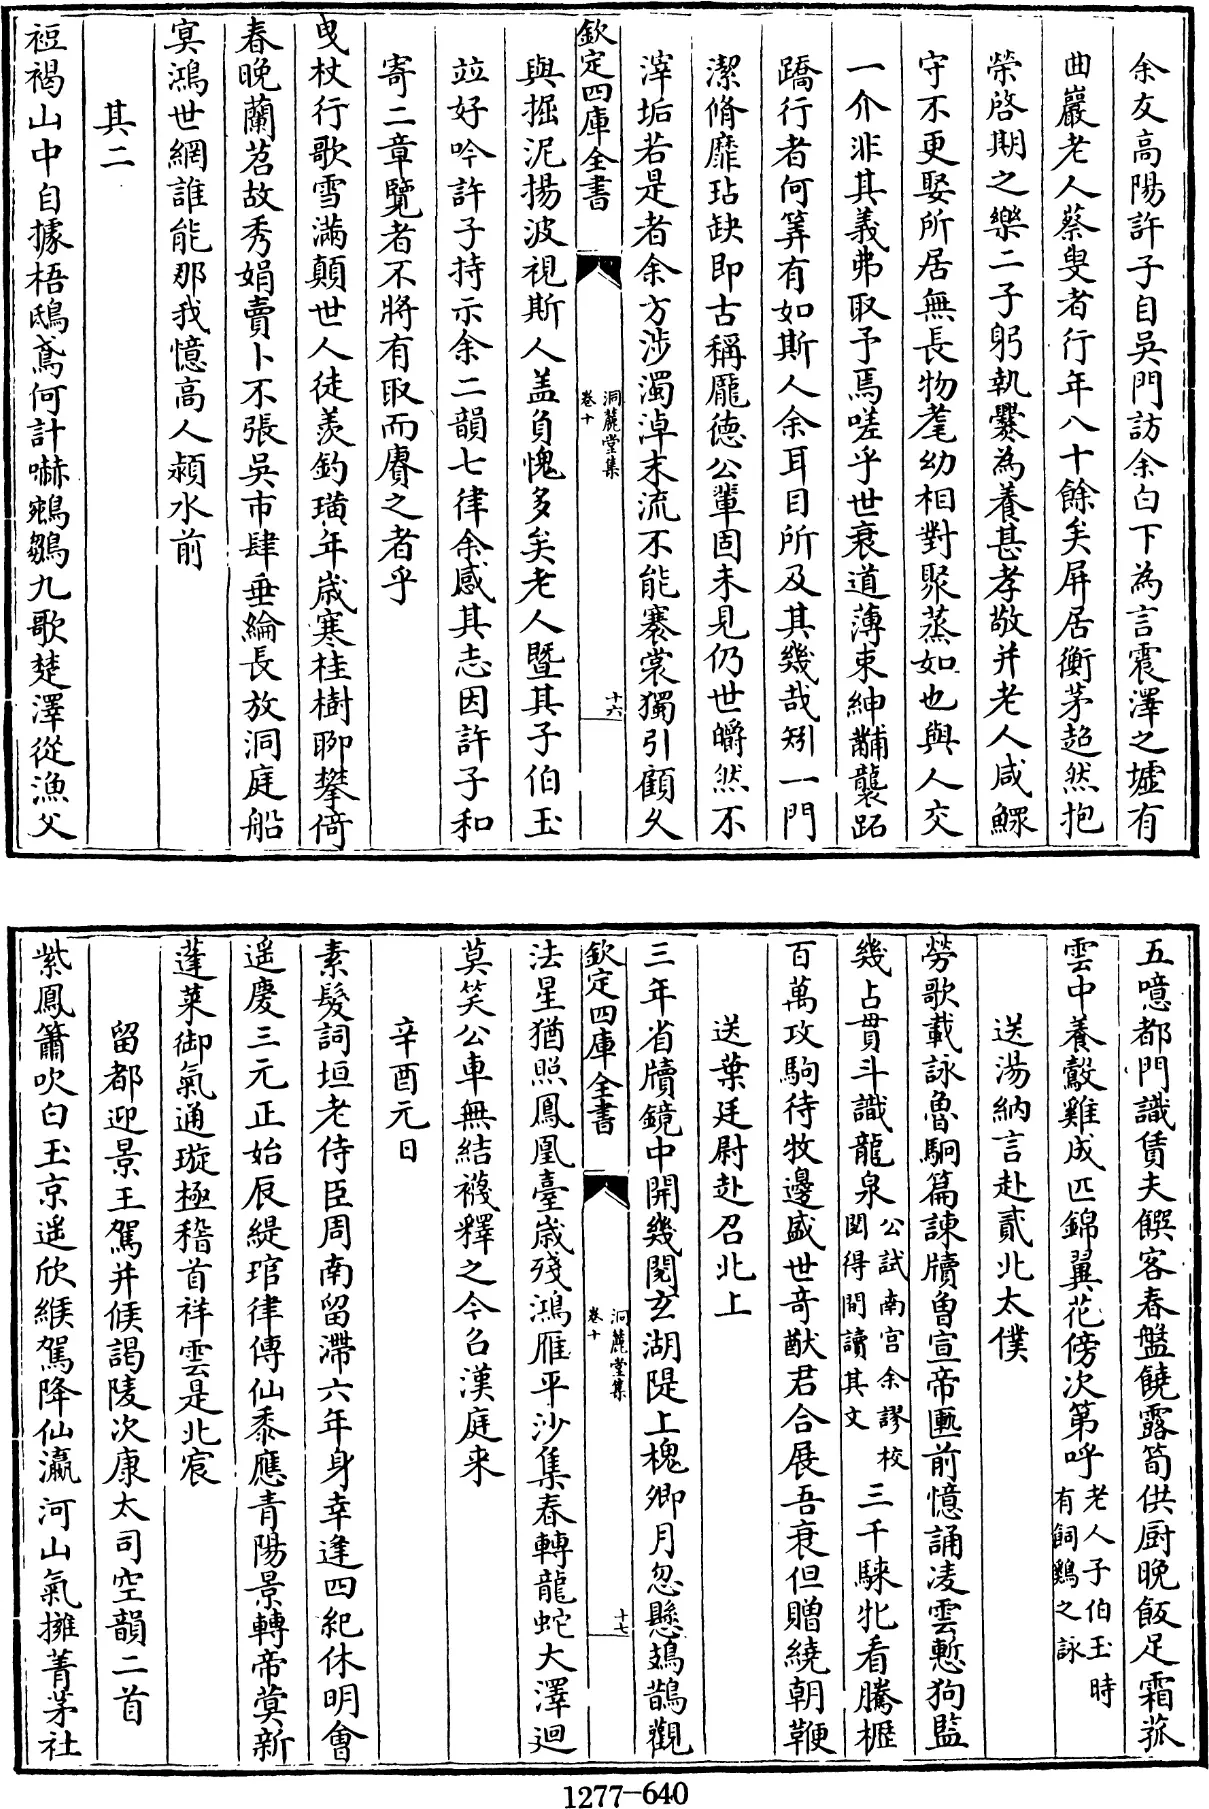 余友高陽許子自吳門訪余白下為言震澤之墟有
曲巖老人蔡叟者行年八十餘矣屏居衡茅超然抱
榮啓期之樂二子躬執爨為養甚孝敬并老人咸鰥
守不更娶所居無長物耄幼相對聚蒸如也與人交
一介非其義弗取予焉嗟乎世衰道薄束紳黼襲跖
蹻行者何筭有如斯人余耳目所及其幾哉矧一門
潔脩靡玷缺即古稱龎德公輩固未見仍世皭然不
滓垢若是者余方涉濁淖末流不能褰裳獨引顧久
欽定四庫全書
洞麓堂集
卷十
十六
與掘泥揚波視斯人盖負愧多矣老人暨其子伯玉
竝好吟許子持示余二韻七律余感其志因許子和
寄二章覽者不將有取而賡之者乎
曳杖行歌雪滿顛世人徒羨釣璜年歳寒桂樹聊攀倚
春晚蘭苕故秀娟賣卜不張吳市肆垂綸長放洞庭船
㝠鴻世網誰能那我憶高人潁水前
其二
裋褐山中自據梧鴟鳶何計嚇鵷鶵九歌楚澤從漁父
五噫都門識賃夫饌客春盤饒露筍供厨晚飯足霜菰
雲中養鷇雞成匹錦翼花傍次第呼
老人子伯玉時
有飼鷄之詠
送湯納言赴貳北太僕
勞歌載詠魯駉篇諫牘曾宣帝扆前憶誦凌雲慙狗監
幾占貫斗識龍泉
公試南宮余謬校
閱得閒讀其文
三千騋牝看騰櫪
百萬攻駒待牧邊盛世竒猷君合展吾衰但贈繞朝鞭
送葉廷尉赴召北上
三年省牘鏡中開幾閱玄湖隄上槐卿月忽懸鳷鵲觀
欽定四庫全書
洞麓堂集
卷十
十七
法星猶照鳳凰臺歳殘鴻雁平沙集春轉龍蛇大澤迴
莫笑公車無結襪釋之今召漢庭来
辛酉元日
素髮詞垣老侍臣周南留滯六年身幸逢四紀休明會
遥慶三元正始辰緹琯律傳仙黍應青陽景轉帝蓂新
蓬莱御氣通璇極稽首祥雲是北宸
留都迎景王駕并候謁陵次康太司空韻二首
紫鳳簫吹白玉京遥欣緱駕降仙瀛河山氣擁菁茅社
1277-640